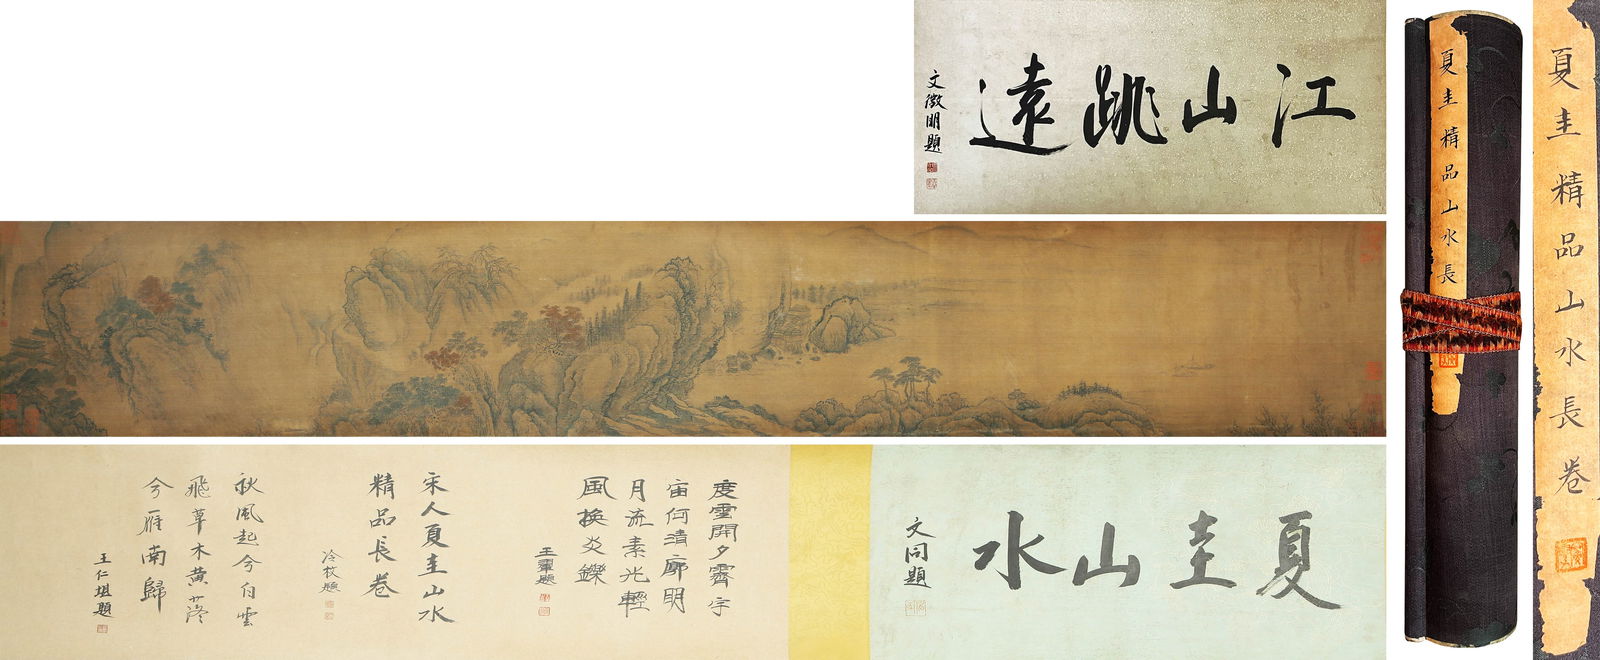 江山跳遠
文徵明題
夏圭精品山水長
夏圭精品山水長卷
夏圭山水
文同題
度雲開夕霽宇
宙何清廓明
月流素光輕
風換炎鑠
王翬題
宋人夏圭山水
精品長卷
冷枚題
秋風起兮白雲
飛草木黄落
兮雁南歸
王仁堪題